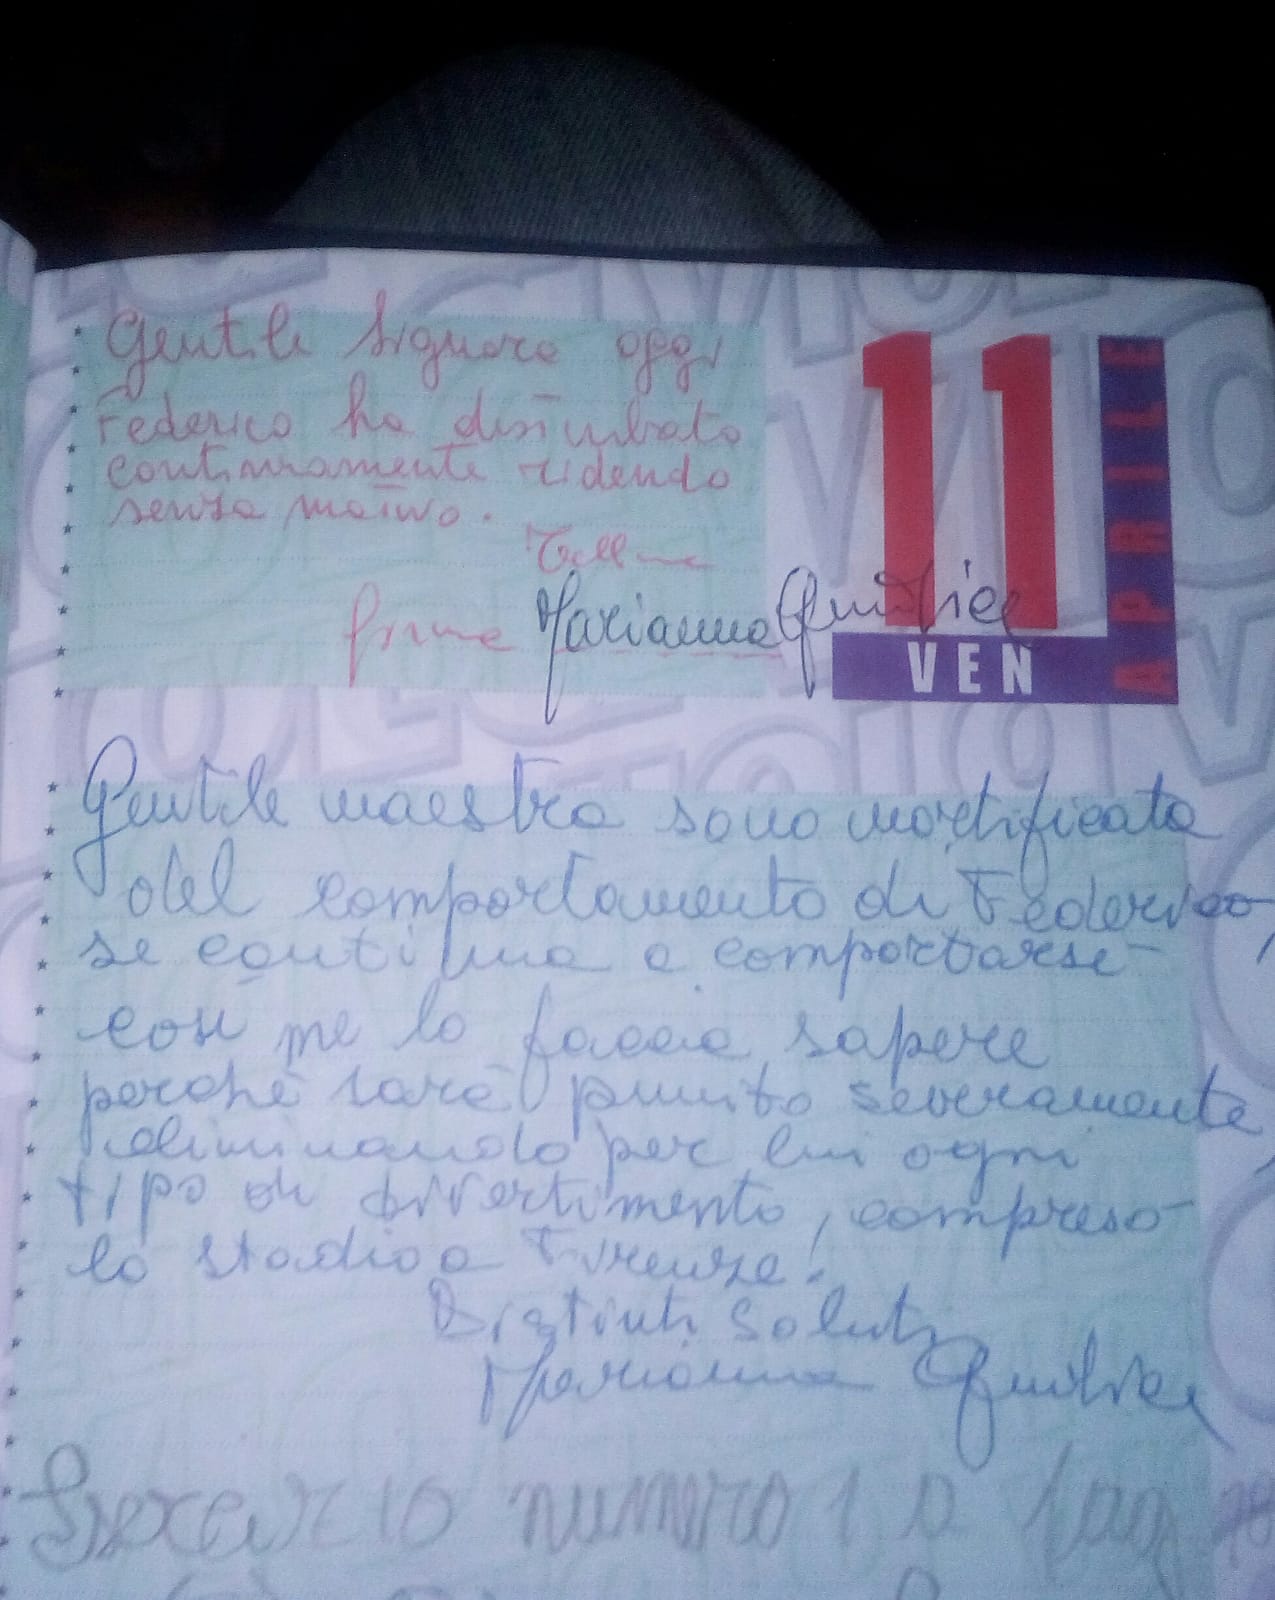 Gentile Signora oggi
Federico ha disturbato
continuamente ridendo
senza motivo.
firma Marianna
11
VEN
APRILE
Gentile maestra sono mortificata
del comportamento di Federico,
se continua a comportarsi
così me lo faccia sapere
perchè sarà punito severamente
eliminando per lui ogni
tipo di divertimento, compreso
lo stadio a Firenze!
Distinti Saluti
Marianna
numero 1 a pag